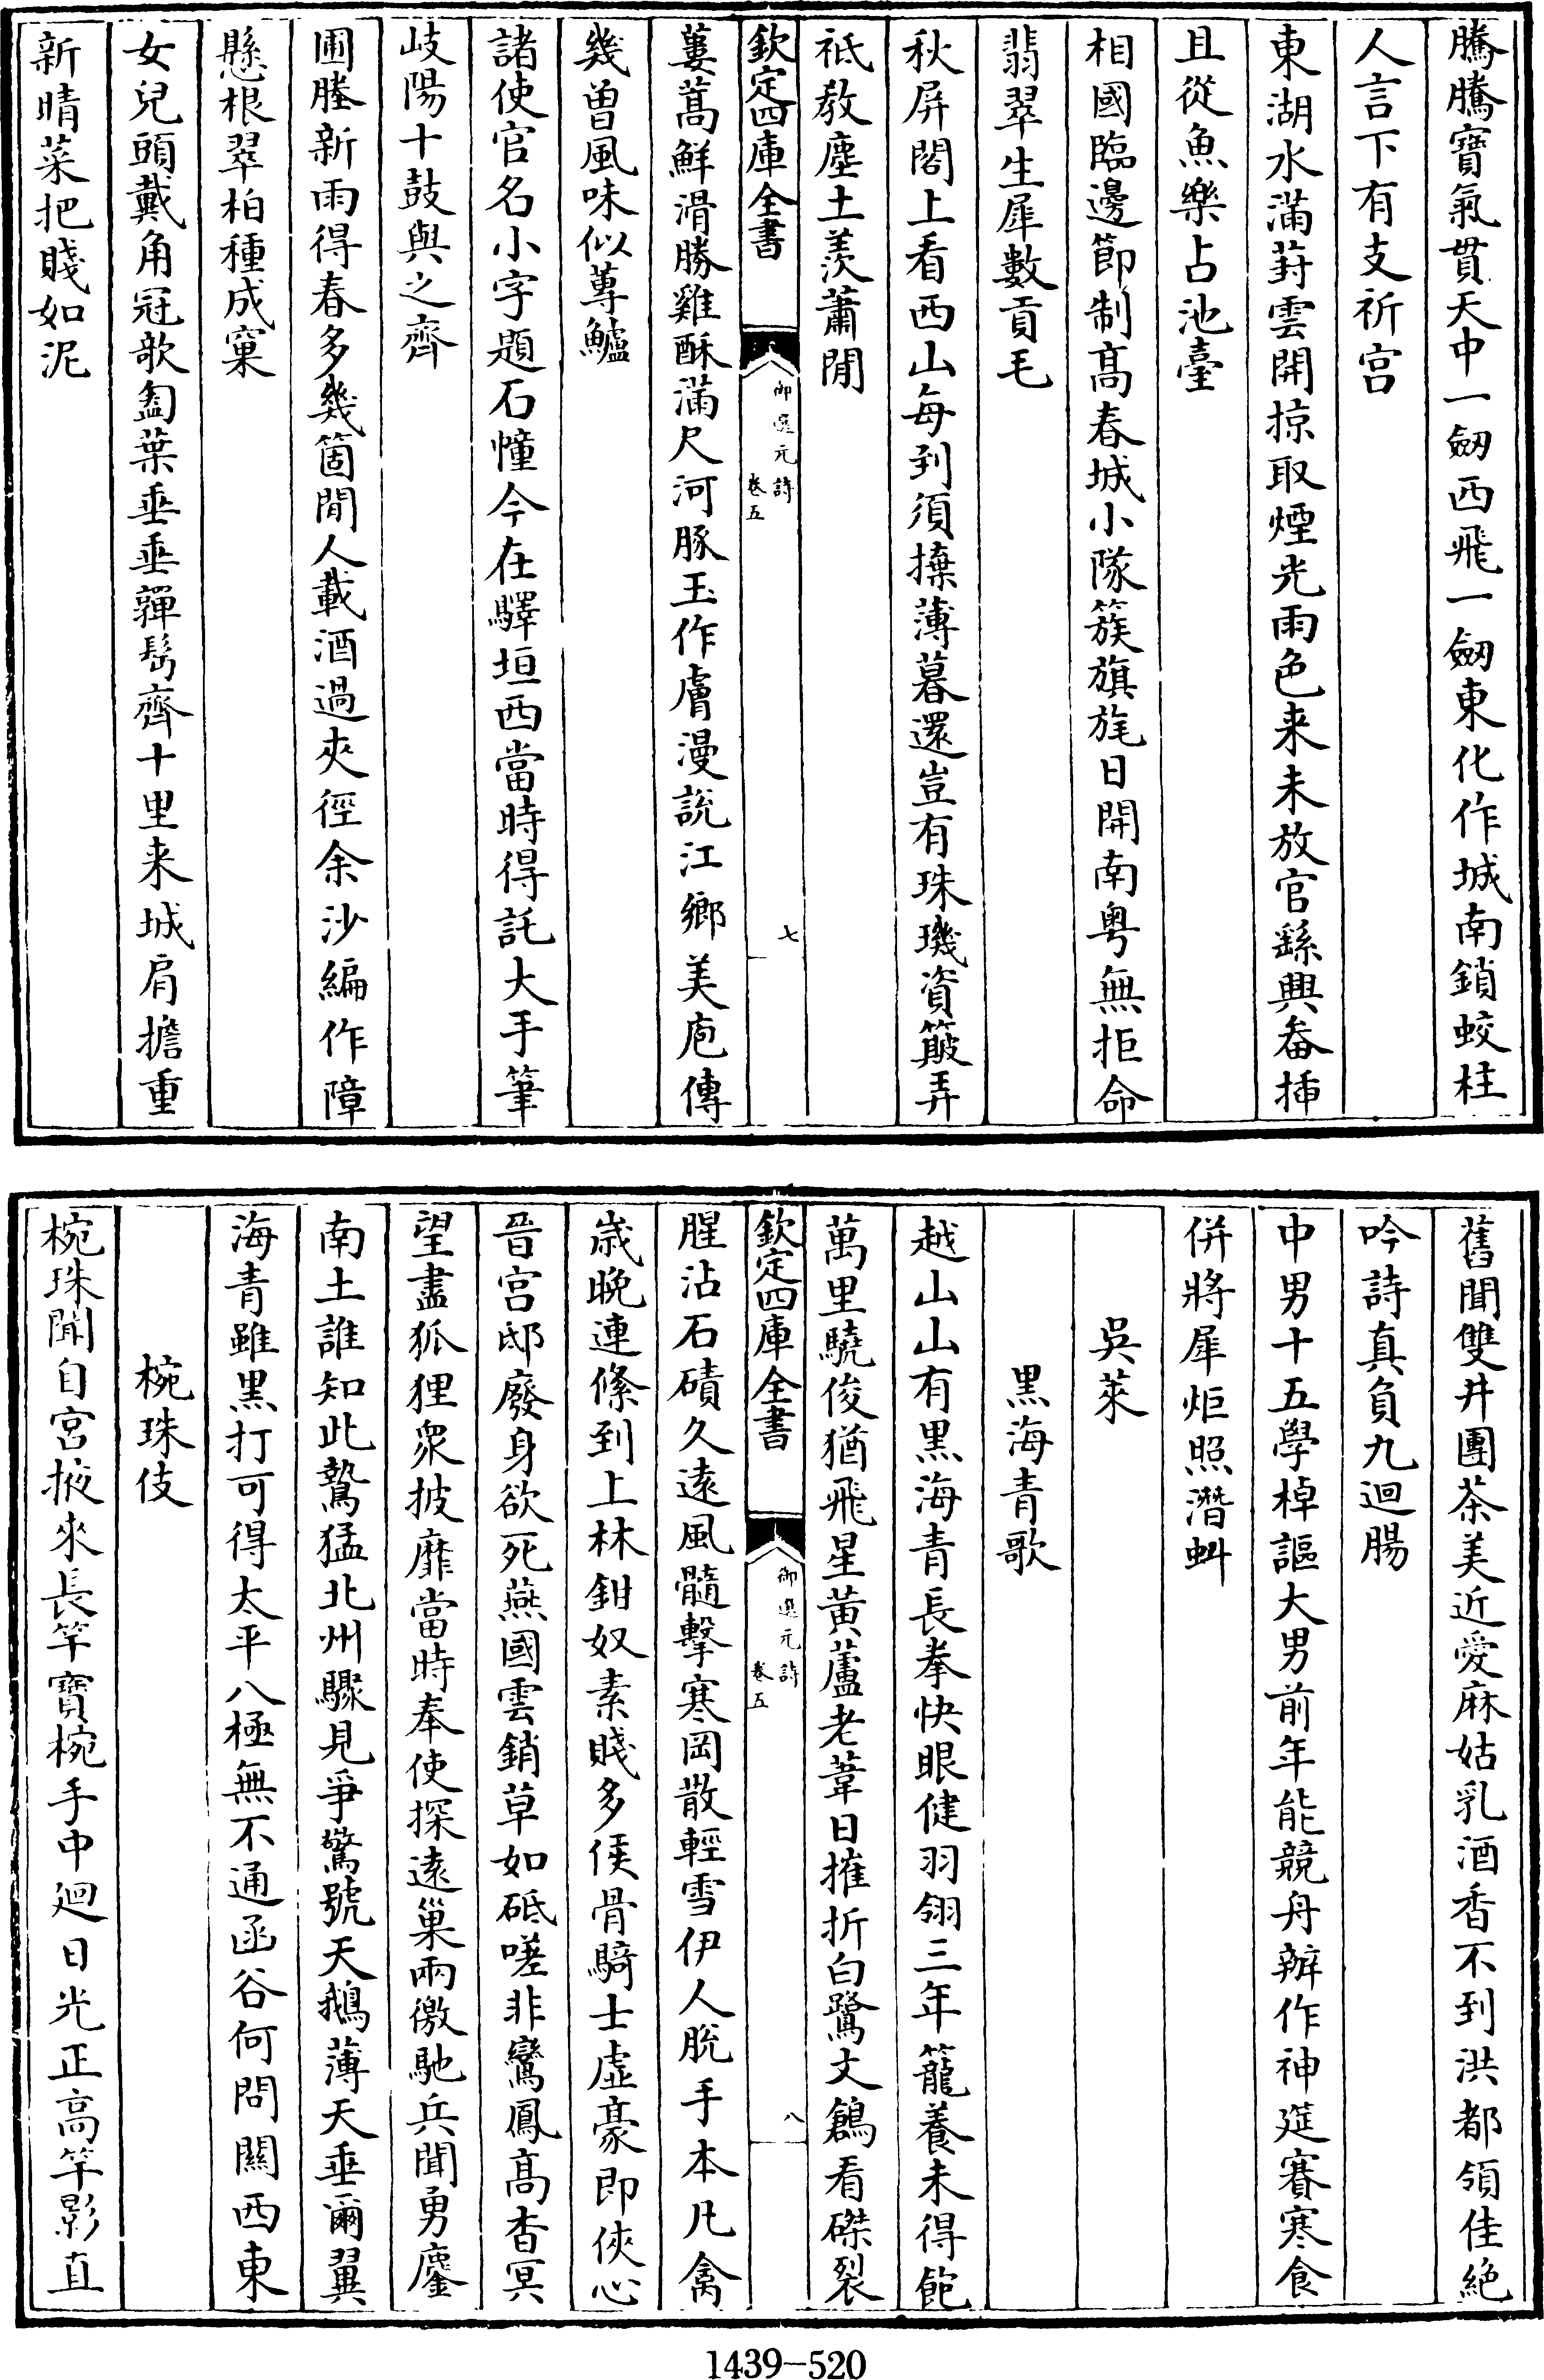 騰騰寶氣貫天中一劒西飛一劒東化作城南鎖蛟柱
人言下有支祈宫
東湖水滿葑雲開掠取煙光雨色来未放官繇興畚揷
且從魚樂占池臺
相國臨邊節制髙春城小隊簇旗旄日開南粤無拒命
翡翠生犀數貢毛
秋屏閣上看西山每到須𢷤薄暮還豈有珠璣資簸弄
祗教塵土羨蕭閒
欽定四庫全書
御選元詩
卷五
七
蔞蒿鮮滑勝雞酥滿尺河豚玉作膚漫說江鄉美庖傳
幾曽風味似蓴鱸
諸使官名小字題石幢今在驛垣西當時得託大手筆
岐陽十鼓與之齊
圃塍新雨得春多幾箇閒人載酒過夾徑余沙編作障
懸根翠柏種成窠
女兒頭戴角冠欹匎葉垂垂嚲髩齊十里来城肩擔重
新晴菜把賤如泥
舊聞雙井團茶美近愛麻姑乳酒香不到洪都領佳絶
吟詩真負九迴腸
中男十五學棹謳大男前年能競舟辦作神筵賽寒食
併將犀炬照潛虯
吳萊
黒海青歌
越山山有黒海青長拳快眼健羽翎三年籠養未得飽
萬里驍俊猶飛星黄蘆老葦日摧折白鷺文鷁看磔裂
欽定四庫全書
御選元詩
卷五
八
腥沾石磧久逺風髓擊寒岡散輕雪伊人脱手本凡禽
嵗晚連絛到上林鉗奴素賤多侯骨騎士虚豪即俠心
晉宫邸廢身欲死燕國雲銷草如砥嗟非鸞鳳髙杳冥
望盡狐狸衆披靡當時奉使探逺巢兩徼馳兵聞勇鏖
南土誰知此鷙猛北州驟見爭驚號天鵝薄天垂爾翼
海青雖黒打可得太平八極無不通函谷何問關西東
椀珠伎
椀珠聞自宫掖來長竿寶椀手中廻日光正高竿影直
1439-520